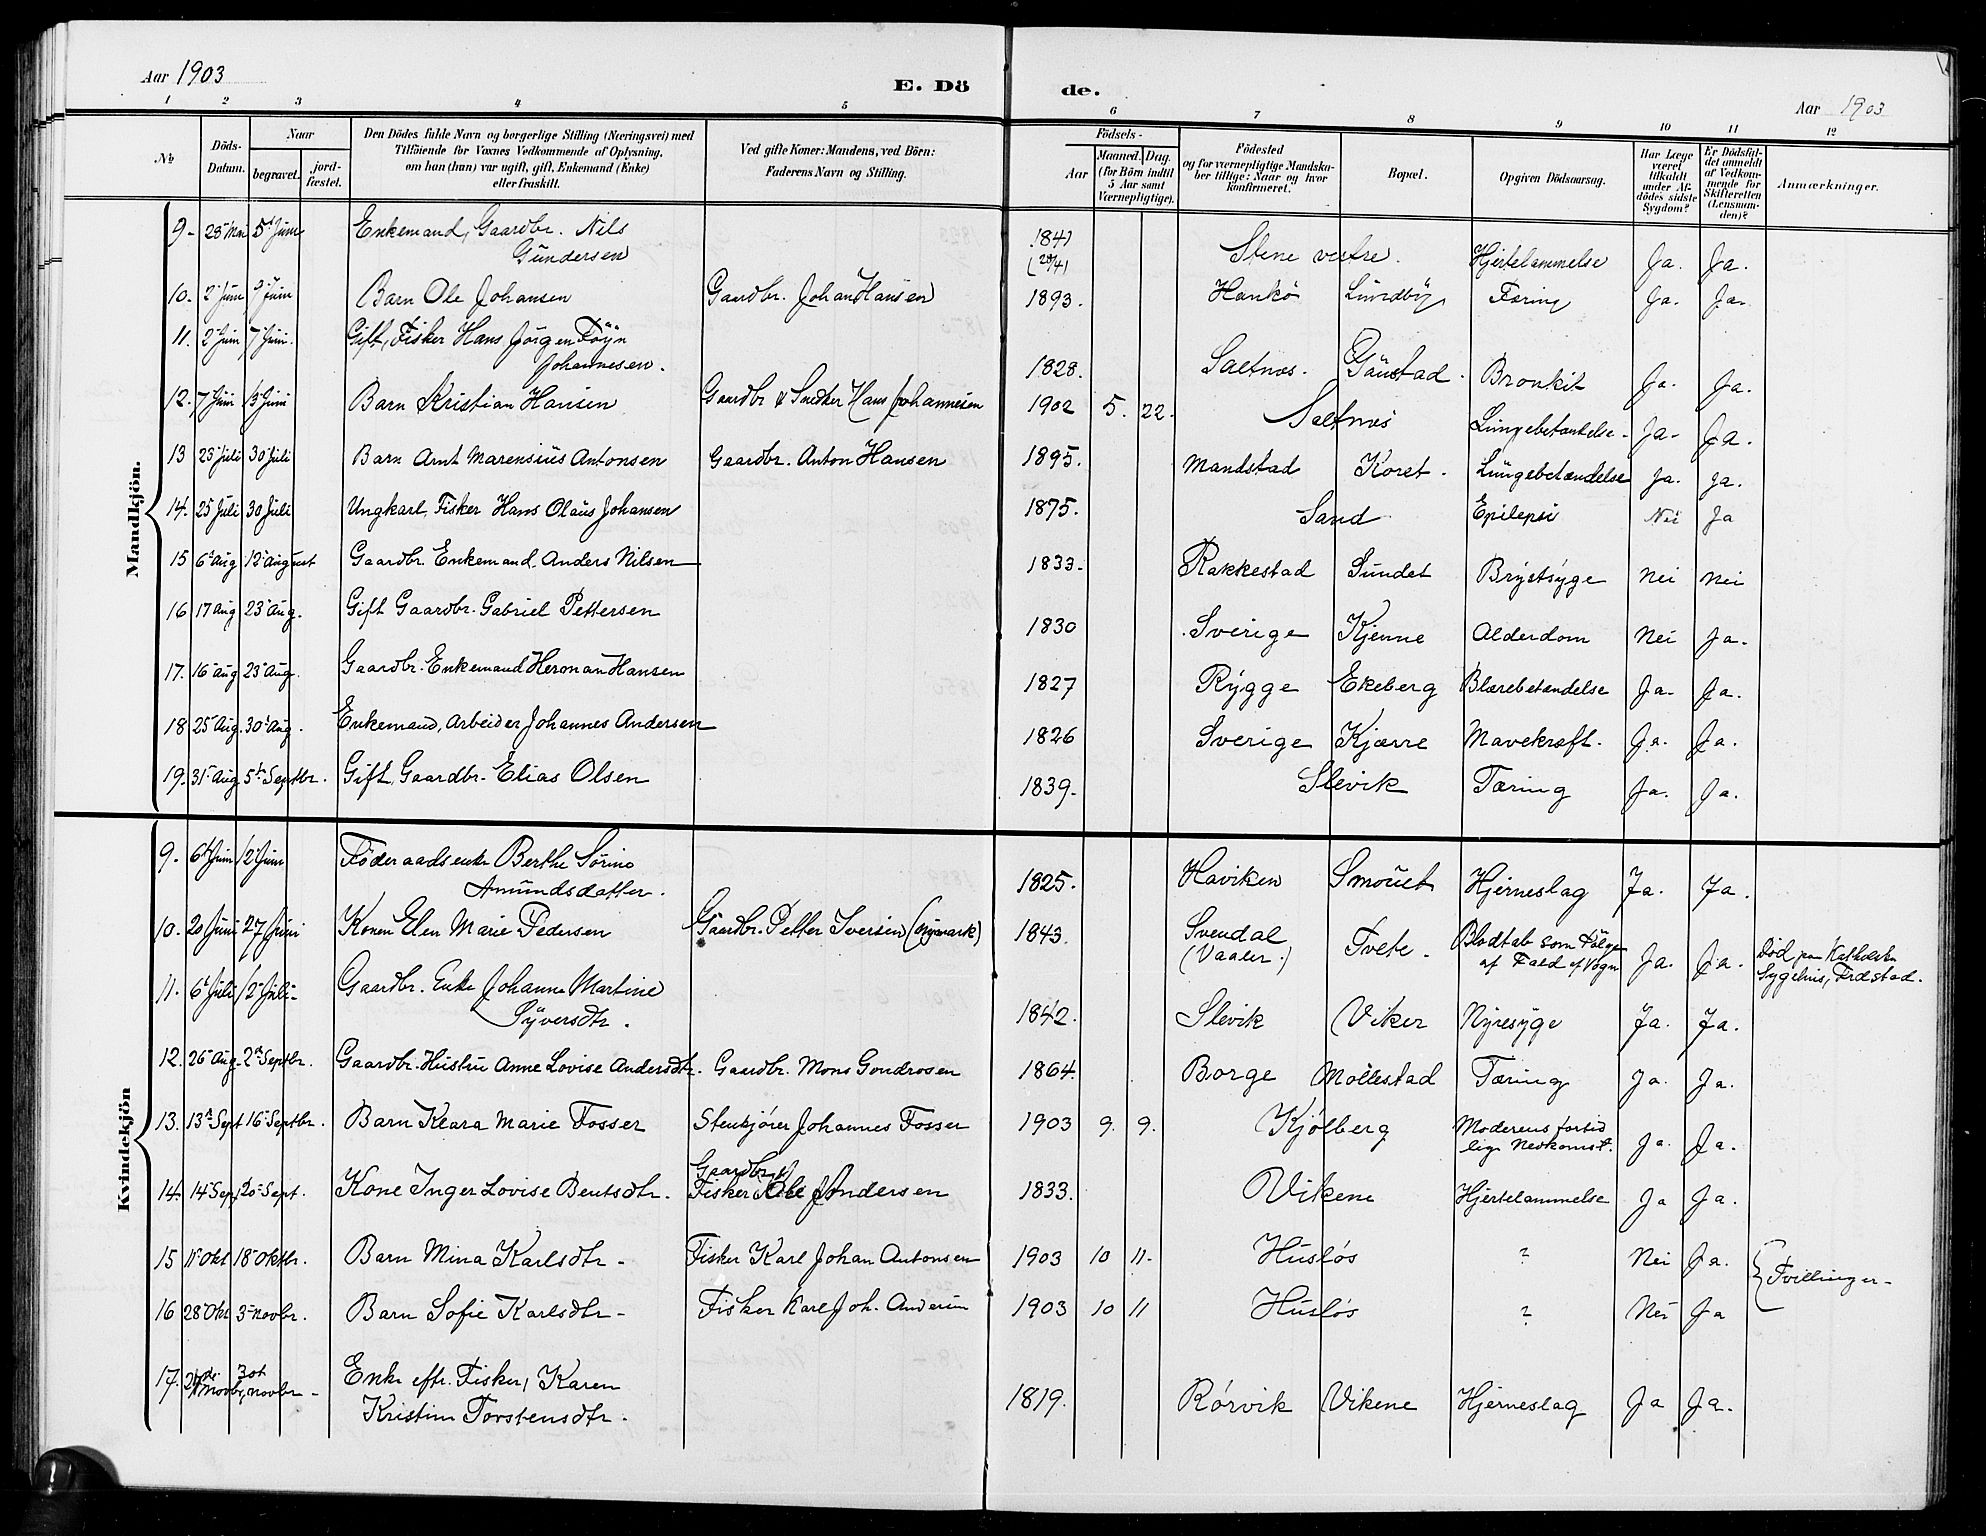 Aar 1903
E. Dö de.
Aar 1903
1 2 3 4 5 6 7 8 9 10 11 12
No
Döds-Datum.
Naar
begravet.
jord-fæstet.
Den Dödes fulde Navn og borgerlige Stilling (Næringsvei) med
Tilföiende for Voxnes Vedkommende af Oplysning,
om han (hun) var ugift, gift, Enkemand (Enke)
eller fraskilt.
Ved gifte Koner: Mandens, ved Börn:
Faderens Navn og Stilling.
Födsels-
Aar
Maaned. Dag.
(for Börn indtil
5 Aar samt
Værnepligtige).
Födested
og for værnepligtige Mandska-
ber tillige: Naar og hvor
konfirmeret.
Bopæl.
Opgiven Dödsaarsag.
Har Læge
været
tilkaldt
under Af-
dödes sidste
Sygdom?
Er Dödsfal-
det anmeldt
af Vedkom-
mende for
Skifteretten
(Lensman-
den)?
Anmærkninger.
Mandkjön.
9 - 28 Mai 5 Juni Enkemand, Gaardbr. Nils 1841
Gundersen Stene vestre. Hjertelammelse Ja. Ja.
10. 2 Juni 7 Juni Barn Ole Johansen Gaardbr. Johan Hansen 1893. Hankö Lundby Tæring Ja. Ja.
11. 2 Juni 7 Juni. Gift, Fisker Hans Jørgen Föyn
Johannesen. 1828. Saltnes. Gaustad. Bronkit Ja. Ja.
12. 7 Juni 13 Juni Barn Kristian Hansen Gaardbr & Snedker Hans Johannesen 1902 5. 22. Saltnes Lungebetændelse - Ja - Ja.
13 23 Juli 30 Juli Barn Arnt Marensius Antonsen Gaardbr. Anton Hansen 1895. Mandstad Koret. Lungebetændelse Ja. Ja.
14. 25 Juli 30 Juli Ungkarl, Fisker Hans Olaus Johansen 1875. Sand Epilepsi Nei Ja
15 6 Aug 12 August Gaardbr. Enkemand Anders Nilsen 1833. Rakkestad Sundet Brystsyge Nei Nei
16 17 Aug 23 Aug. Gift Gaardbr. Gabriel Pettersen 1830 Sverige Kjenne Alderdom Nei Ja.
17. 16 Aug 23 Aug. Gaardbr. Enkemand Herman Hansen 1827 Rygge Ekeberg Blærebetændelse Ja. Ja.
18 25 Aug. 30 Aug. Enkemand, Arbeider Johannes Andersen 1826 Sverige Kjærre Mavekræft. Ja. Ja.
19. 31 Aug 5 Septbr. Gift, Gaardbr. Elias Olsen 1839. Slevik Tæring Ja. Ja.
Kvindekjön
9. 6 Juni 12 Juni Föderaadsenke Berthe Sörine
Amundsdatter. 1825. Haviken Smouet Hjerneslag Ja. Ja.
10. 20 Juni 27 Juni Konen Elen Marie Pedersen Gaardbr. Petter Iversen 1843. Svendal
(Vaaler.) Tvete. Blodtab som Følge
af Fald af Vogn Ja. Ja. Død paa Katholske
Sygehus, Frdstad.
11. 6 Juli 12 Juli Gaardbr. Enke Johanne Martine
Syversdtr. 1842. Slevik Viker Nyresyge Ja. Ja.
12. 26 Aug 2 Septbr. Gaardbr. Hustru Anne Lovise Andersdtr. Gaardbr. Mons Gundrosen 1864. Borge Möllestad Tæring Ja. Ja.
13. 13 Sept 16 Septbr. Barn Klara Marie Fosser Stenkjører Johannes Fosser 1903 9. 9. Kjölberg Moderens fortid
lige Nedkomst. Ja. Ja.
14. 14 Sep. 20 Sept. Kone Inger Lovise Bentsdtr. Gaardbr &
Fisker Ole Andersen 1833. Vikene Hjertelammelse Ja Ja.
15 11 Okt 18 Oktbr. Barn Mina Karlsdtr - Fisker Karl Johan Antonsen 1903 10 11. Husløs ? Nei Ja.
Tvillinger -
16 28 Okt 3 Novbr. Barn Sofie Karlsdtr - Fisker Karl Joh. 1903 10 11 Husløs ? Nei Ja
17. Novbr. Novbr - Enke eftr. Fisker, Karen
Kristine Torstensdtr. 1819. Rörvik Vikene Hjerneslag Ja Ja.